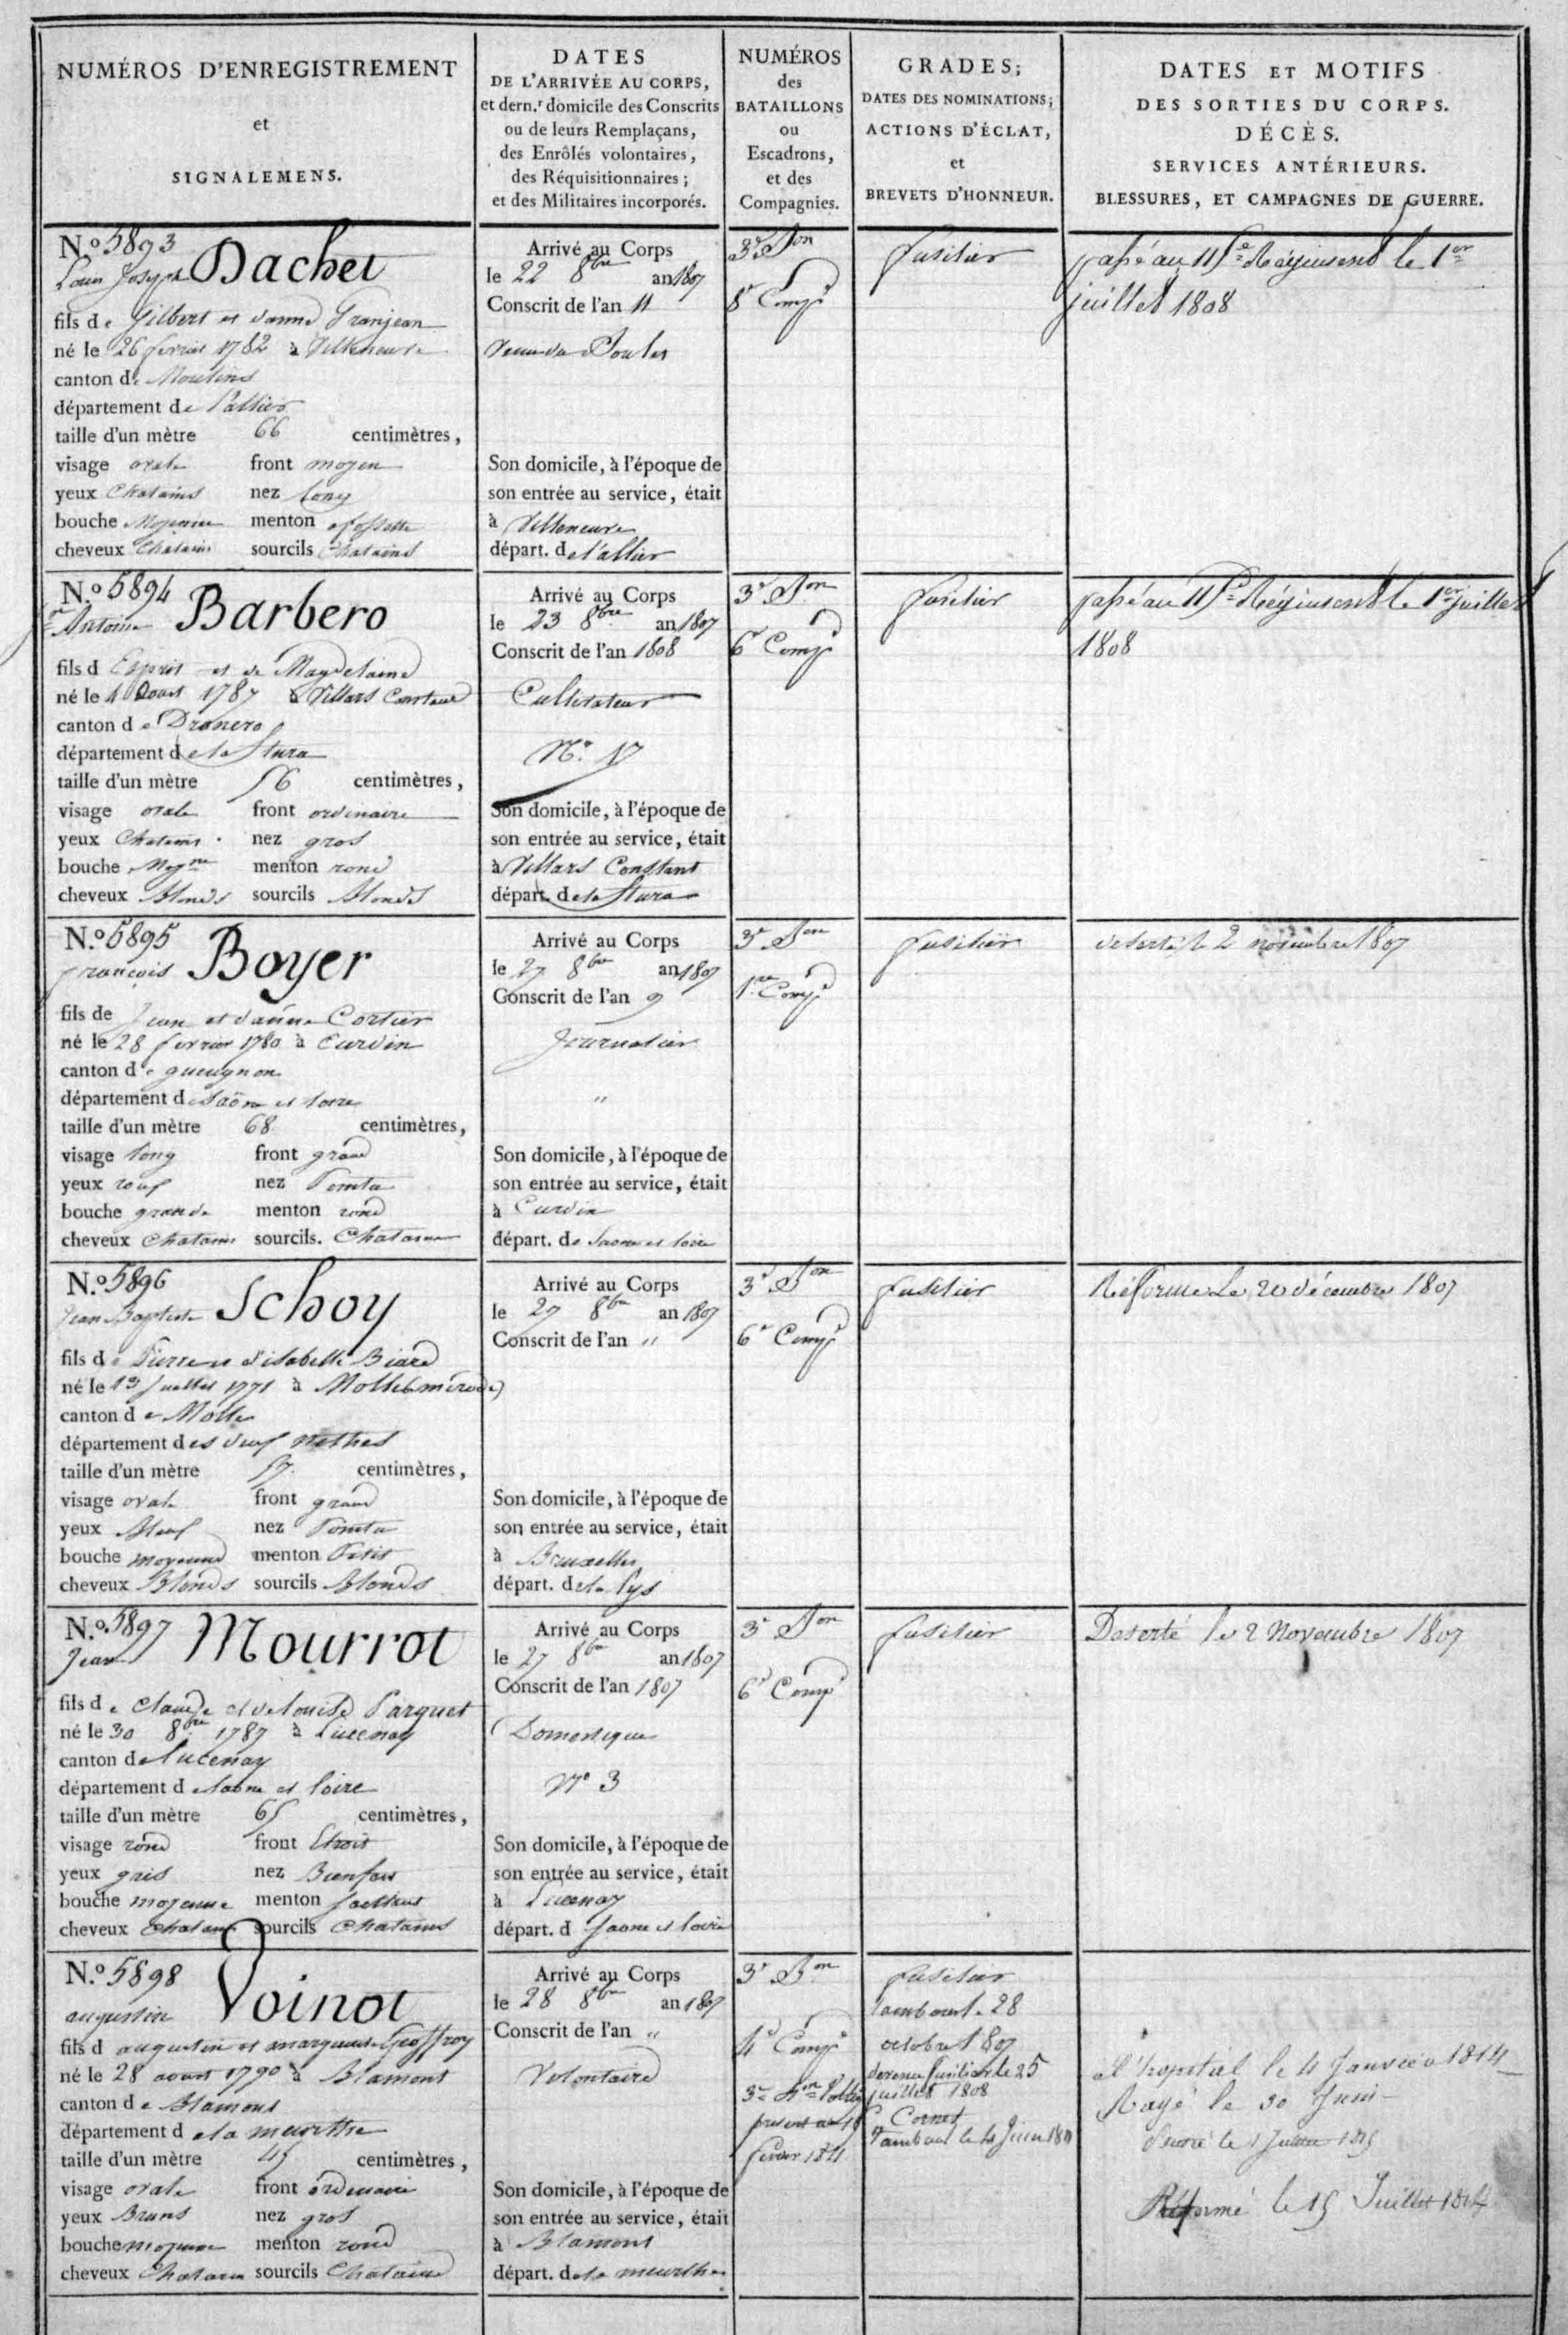 NUMÉROS D'ENREGISTREMENT
et
SIGNALEMENS.
DATES
DE L'ARRIVÉE AU CORPS,
et dern.r domicile des Conscrits
ou de leurs Remplaçans,
des Enrôlés volontaires,
des Réquisitionnaires;
et des Militaires incorporés.
NUMÉROS
des
BATAILLONS
ou
Escadrons,
et des
Compagnies.
GRADES;
DATES DES NOMINATIONS;
ACTIONS D'ÉCLAT,
et
BREVETS D'HONNEUR.
DATES ET MOTIFS
DES SORTIES DU CORPS.
DÉCÈS.
SERVICES ANTÉRIEURS.
BLESSURES, ET CAMPAGNES DE GUERRE.
N.º 5893
Louis Joseph Dachet
fils de Gilbert et d'anne Granjean
né le 26 fevrier 1782 à Villeneuve
canton de Moulins
département de l'allier
taille d'un mètre 66 centimètres,
visage ovale front moyen
yeux Chatains nez long
bouche Moyenne menton a fossette
cheveux Chatains sourcils Chatains
Arrivé au Corps
le 22 8bre an 1807
Conscrit de l'an 11
Son domicile, à l'époque de
son entrée au service, était
à Villeneuve
départ. de l'allier
3e Bon
8e Comp.e
fusilier
passé au 115e Régiment le 1er
juillet 1808
N.º 5894
Antoine Barbero
fils d Esprit et de Magdelaine
né le 4 Aoust 1787 à Villars Constant
canton de Dronero
département de la Stura
taille d'un mètre 56 centimètres,
visage ovale front ordinaire
yeux Chatains nez gros
bouche Moy.ne menton rond
cheveux Blonds sourcils Blonds
Arrivé au Corps
le 23 8bre an 1807
Conscrit de l'an 1808
Cultivateur
N.º 17
Son domicile, à l'époque de
son entrée au service, était
à Villars Constant
départ. de la Stura
3e Bon
6e Comp.e
fusilier
passé au 115e Régiment le 1er juillet
1808
N.º 5895
françois Boyer
fils de Jean et d'anne Cortier
né le 28 fevrier 1780 à Curdin
canton de gueugnon
département de Saône et loire
taille d'un mètre 68 centimètres,
visage long front grand
yeux roux nez Pointu
bouche grande menton rond
cheveux Chatains sourcils. Chatains
Arrivé au Corps
le 27 8bre an 1807
Conscrit de l'an 9
Journalier
"
Son domicile, à l'époque de
son entrée au service, était
à Curdin
départ. de Saone et loire
3e Bon
1re Comp.e
fusilier
deserté le 2 novembre 1807
N.º 5896
Jean Baptiste Schoy
fils de Pierre et d'isabelle Biard
né le 13 Juillet 1771 à
canton de Molle
département des deux nethes
taille d'un mètre 57 centimètres,
visage ovale front grand
yeux bleux nez Pointu
bouche moyenne menton Petit
cheveux Blonds sourcils Blonds
Arrivé au Corps
le 27 8bre an 1807
Conscrit de l'an "
Son domicile, à l'époque de
son entrée au service, était
à Bruxelles
départ. de la Lys
3e Bon
6e Comp.e
fusilier
Réformé Le 20 décembre 1807
N.º 5897
Jean Mourrot
fils de Claude et de louise Parquet
né le 30 8bre 1787 à Lucenay
canton de lucenay
département de Saone et loire
taille d'un mètre 65 centimètres,
visage rond front Etroit
yeux gris nez Bienfait
bouche moyenne menton
cheveux Chatains sourcils Chatains
Arrivé au Corps
le 27 8bre an 1807
Conscrit de l'an 1807
Domestique
N.º 3
Son domicile, à l'époque de
son entrée au service, était
à Lucenay
départ. d Saone et loire
3e Bon
6e Comp.e
fusilier
Deserté le 2 Novembre 1807
N.º 5898
augustin Voinot
fils d augustin et marguerite Geoffroy
né le 28 aoust 1790 à Blamont
canton de Blamont
département de la meurthe
taille d'un mètre 45 centimètres,
visage ovale front ordinaire
yeux Bruns nez gros
bouche moyenne menton rond
cheveux Chatains sourcils Chatains
Arrivé au Corps
le 28 8bre an 1807
Conscrit de l'an "
Volontaire
Son domicile, à l'époque de
son entrée au service, était
à Blamont
départ. de la meurthe
3e Bon
4e Comp.e
3e Bon
present au 16
fevrier 1811
fusilier
Tambour le 28
octobre 1807
devenu fusilier le 25
juillet 1808
Cornet
Tambour le 4 Juin 1811
l'hopital le 4 Janvier 1814
Rayé le 30 Juin
le 1 Juillet
Réformé le 15 Juillet 1814